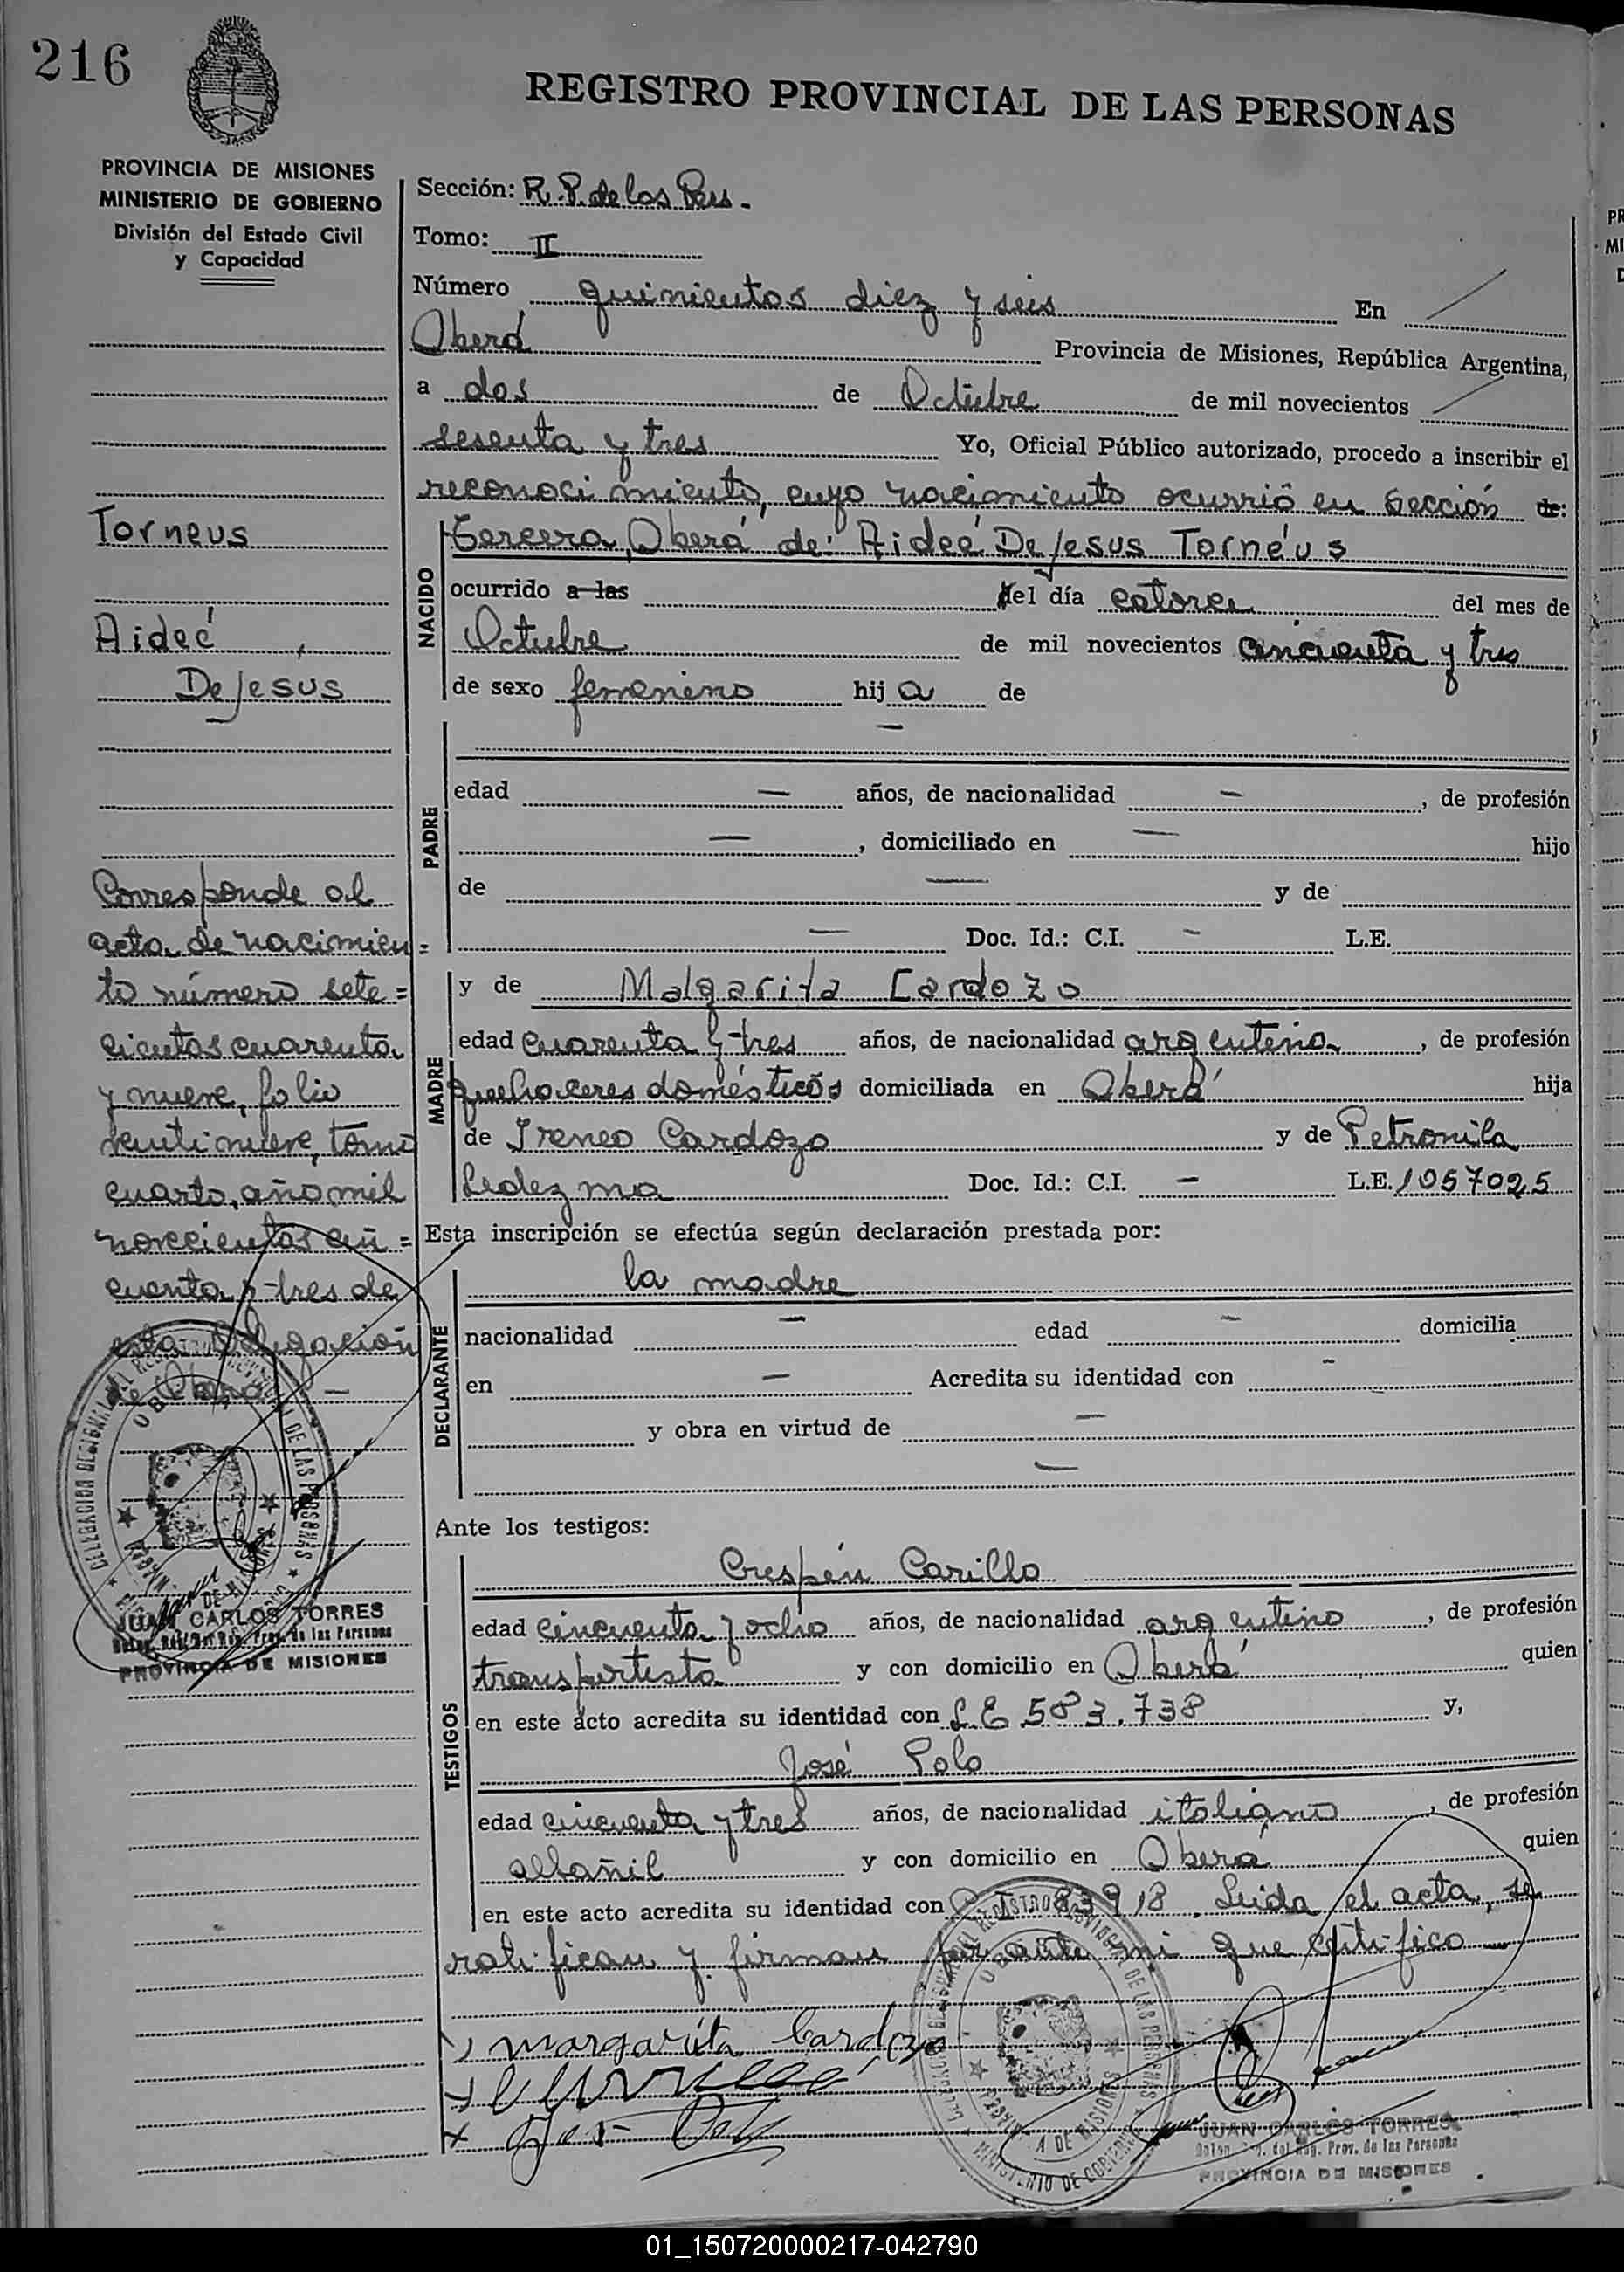 216
REGISTRO PROVINCIAL DE LAS PERSONAS
PROVINCIA DE MISIONES
MINISTERIO DE GOBIERNO
División del Estado Civil
y Capacidad
Torneus
Aideé
De Jesús
Corresponde al
acta de nacimien=
to número sete=
cientos cuarenta
y nueve, folio
veintinueve, tomo
cuarto, año mil
novecientos cin=
cuenta y tres de
esta Delegación
de Oberá. —
JUAN CARLOS TORRES
PROVINCIA DE MISIONES
Sección: R. P. de los Pers.
Tomo: II
Número quinientos diez y seis En
Oberá Provincia de Misiones, República Argentina,
a dos de Octubre de mil novecientos
sesenta y tres Yo, Oficial Público autorizado, procedo a inscribir el
reconocimiento, cuyo nacimiento ocurrió en Sección de:
NACIDO
Tercera, Oberá de: Aideé De Jesus Tornéus
ocurrido a las del día catorce del mes de
Octubre de mil novecientos cincuenta y tres
de sexo femenino hija de
—
PADRE
edad — años, de nacionalidad —, de profesión
—, domiciliado en — hijo
de — y de
— Doc. Id.: C.I. — L.E.
MADRE
y de Malgarita Cardozo
edad cuarenta y tres años, de nacionalidad argentina, de profesión
quehaceres domésticos domiciliada en Oberá hija
de Ireneo Cardozo y de Petronila
Ledezma Doc. Id.: C.I. — L.E. 1057025
Esta inscripción se efectúa según declaración prestada por:
DECLARANTE
la madre
nacionalidad — edad — domicilia
en — Acredita su identidad con -
y obra en virtud de —
—
Ante los testigos:
TESTIGOS
Crespín Carillo
edad cincuenta y ocho años, de nacionalidad argentino, de profesión
transportista y con domicilio en Oberá quien
en este acto acredita su identidad con L.E 583.738 y,
José Polo
edad cincuenta y tres años, de nacionalidad italiano, de profesión
albañil y con domicilio en Oberá quien
en este acto acredita su identidad con Leida el acta, se
ratifican y firman por ante mi que certifico —
margarita Cardozo
JUAN CARLOS TORRES
PROVINCIA DE MISIONES
01_150720000217-042790